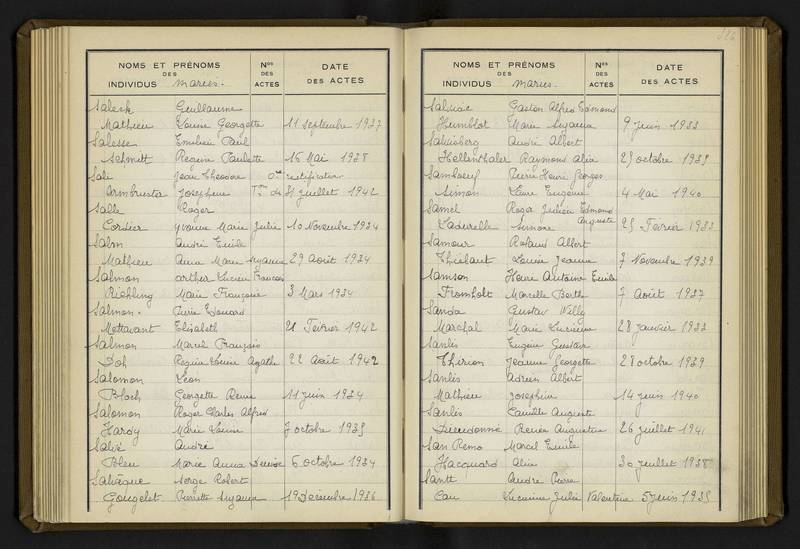 NOMS ET PRÉNOMS
DES
INDIVIDUS mariés.
Nos
DES
ACTES
DATE
DES ACTES
Saleck Guillaume
Mathieu Louise Georgette 11 Septembre 1937
Salesse Emilien Paul
Schmitt Regine Paulette 16 Mai 1938
Sali Jean Theodore rectification
Armbruster Josephine 31 juillet 1942
Salle Roger
Cordier Yvonne Marie Julie 10 Novembre 1934
Salm André Emile
Mathieu Anna Marie Suzanne 29 Août 1934
Salmon Arthur Lucien François
Richling Marie Françoise 3 Mars 1934
Salmon. Pierre Edouard
Mettavant Elisabeth 21 Fevrier 1942
Salmon Marcel François
Doh Regine Louise Agathe 22 Août 1942
Salomon Leon
Bloch Georgette Renée 11 juin 1934
Salomon Roger Charles Alfred
Hardy Marie Louise 7 octobre 1935
Salvé André
Bleu Marie Anna Denise 6 octobre 1934
Salvêque Serge Robert
Gougelet Pierrette Suzanne 19 Decembre 1936
NOMS ET PRÉNOMS
DES
INDIVIDUS mariés.
Nos
DES
ACTES
DATE
DES ACTES
Gaston Alfred Edmond
Humblot Marie Suzanne 9 juin 1933
André Albert
Hellenthaler Raymond Alice 25 octobre 1935
Pierre Henri Georges
Simon Laure Eugénie 4 Mai 1940
Samel Roger Julien Edmond
Auguste
Ladurelle Simone 25 Fevrier 1933
Samour Roland Albert
Thiébaut Lucie Jeanne 7 Novembre 1939
Samson Henri Antoine Emile
Fromholt Marcelle Berthe 7 Août 1937
Sanda Gustav Willy
Marchal Marie Lucienne 28 janvier 1933
Sanlis Eugène Gustave
Thirion Jeanne Georgette 28 octobre 1939
Sanlis Adrien Albert
Mathieu Josephine 14 juin 1940
Sanlis Camille Auguste
Dieudonné Renée Augustine 26 juillet 1941
San Remo Marcel Emile
Hacquard Alice 30 juillet 1938
Santt André Pierre
Cau Lucienne Julie Valentine 5 juin 1935